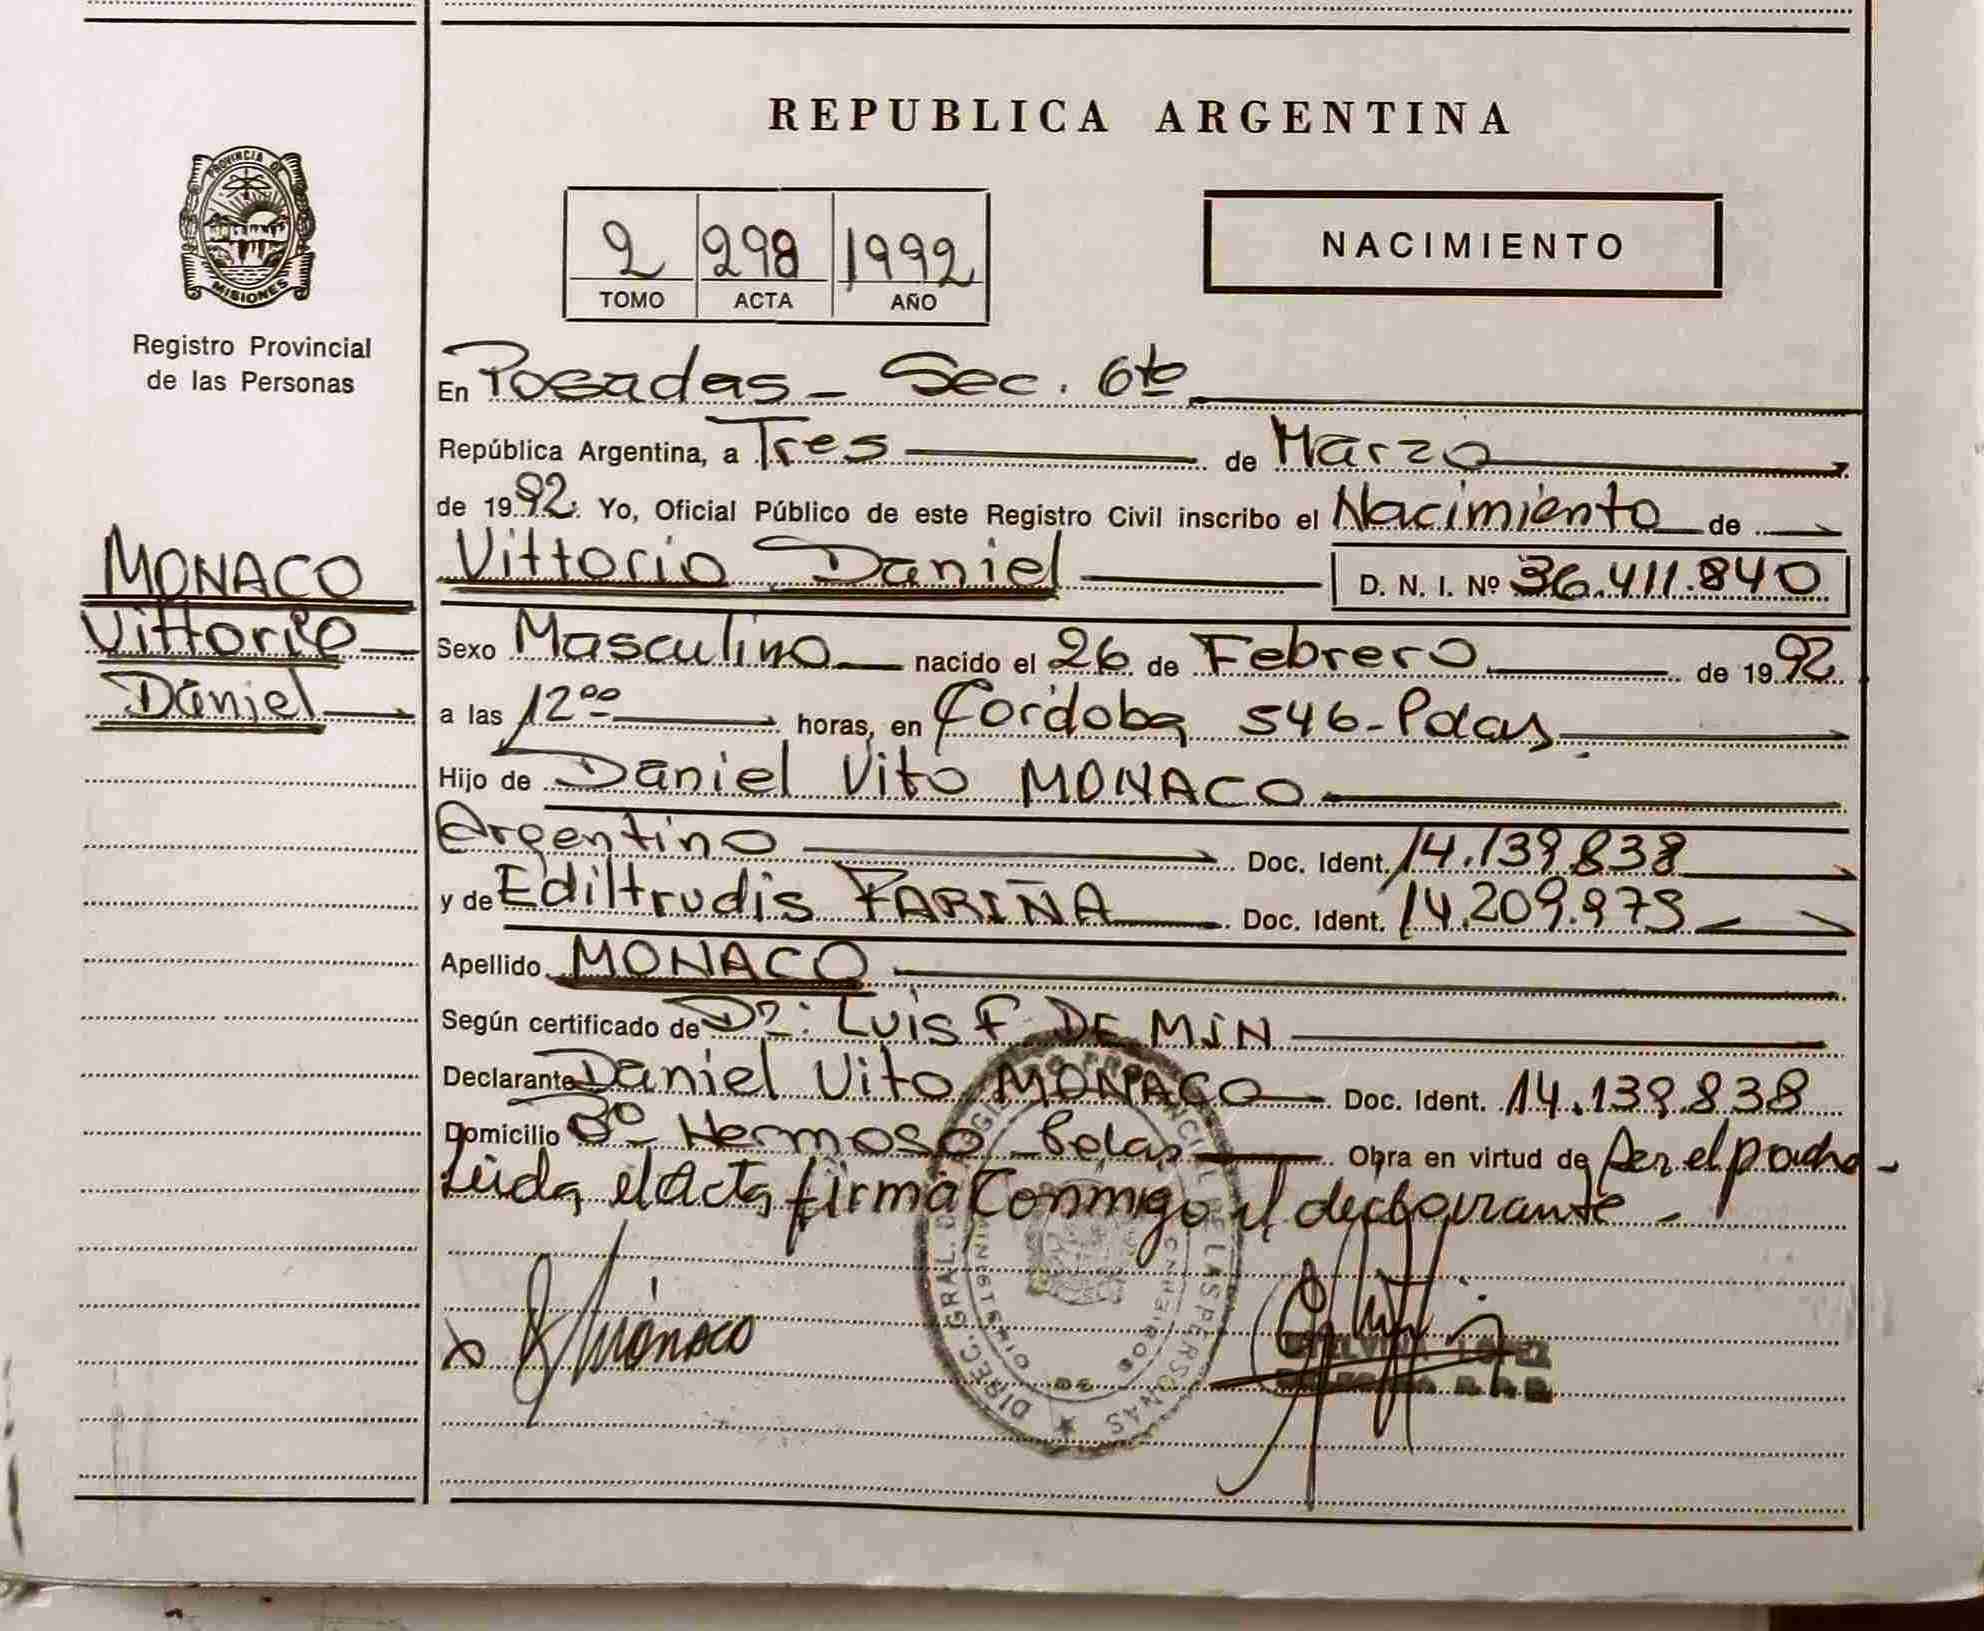 REPUBLICA ARGENTINA
PROVINCIA DE
MISIONES
Registro Provincial
de las Personas
2 298 1992
TOMO ACTA AÑO
NACIMIENTO
En Posadas - Sec. 6ta
República Argentina, a Tres de Marzo
de 1992. Yo, Oficial Público de este Registro Civil inscribo el Nacimiento de
Vittorio Daniel D. N. I. Nº 36.411.840
MONACO
Vittorio
Daniel
Sexo Masculino nacido el 26 de Febrero de 1992
a las 12 00 horas, en Córdoba 546 - Pdas
Hijo de Daniel Vito MONACO
Argentino Doc. Ident. 14.139.838
y de Ediltrudis FARIÑA Doc. Ident. 14.209.979
Apellido MONACO
Según certificado de Dr: Luis F. DE MIN
Declarante Daniel Vito MONACO Doc. Ident. 14.139.838
Domicilio Bº Hermoso Obra en virtud de Ser el padre -
Leida el acta firma conmigo el declarante -
Monaco
LOPEZ
DIREC. GRAL. DE LAS PERSONAS